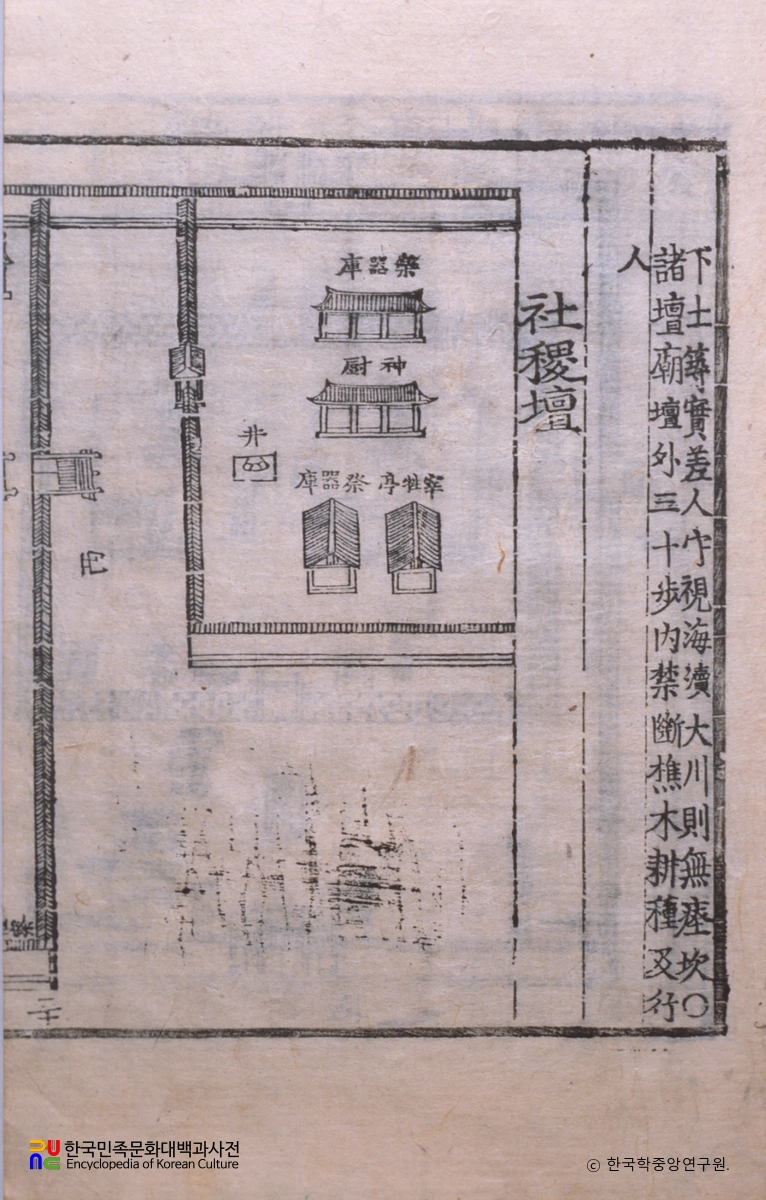 下土築實差人守視海瀆大川則無瘞坎○
諸壇廟壇外三十步內禁斷樵木耕種及行
人
社稷壇
樂器庫
神厨
宰牲亭
祭器庫
井
門
한국민족문화대백과사전
Encyclopedia of Korean Culture
ⓒ 한국학중앙연구원.